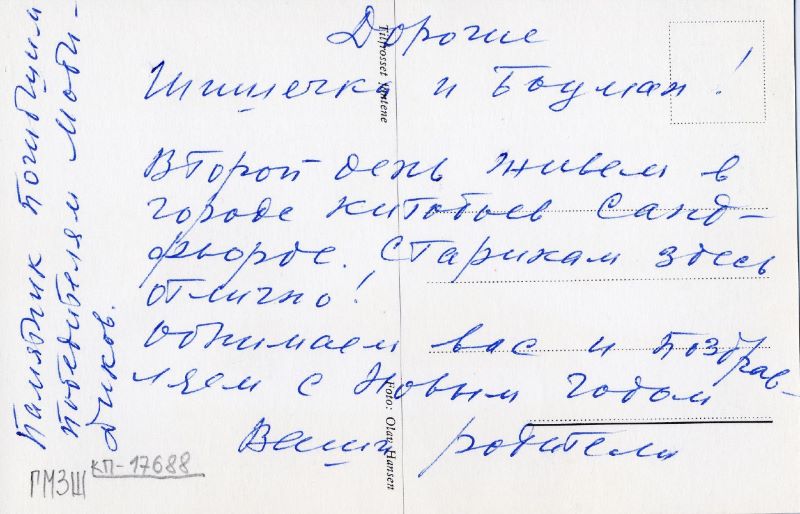 Дорогие
Шишечка и Боцман!
Второй день живем в
городе китобоев Санд-
фьорде. Старикам здесь
отлично!
Обнимаем вас и поздрав-
ляем с Новым годом
Ваши родители
Памятник погибшим
победителям Моби-
Диков.
Tilfrosset
Foto: Olav Hansen
КП-17688
ГМЗШ